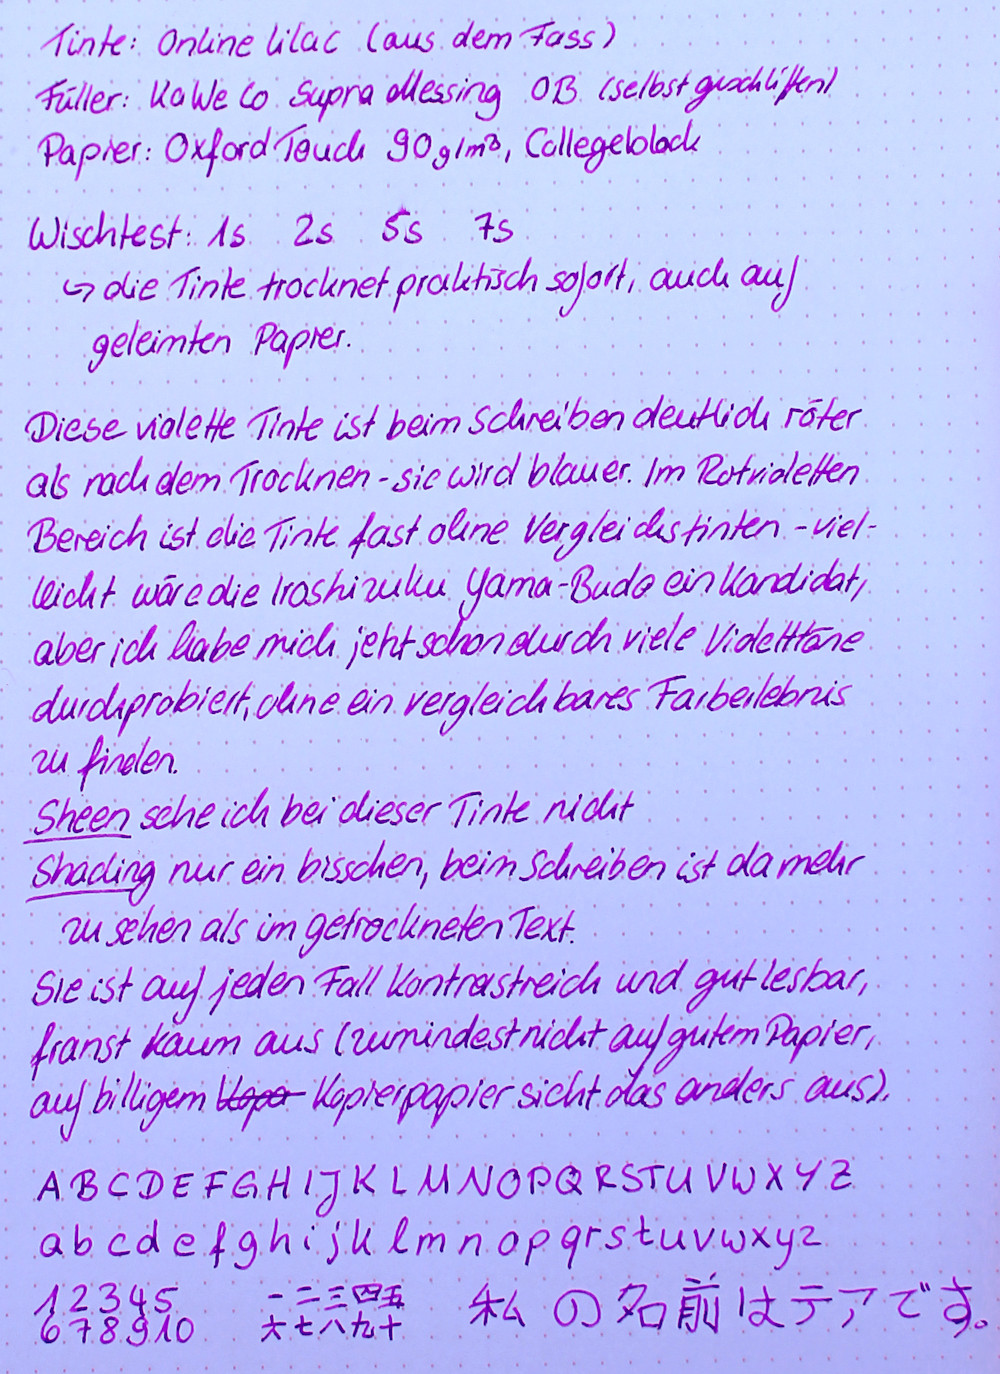 Tinte: Online lilac (aus dem Fass)
Füller: KaWeCo Supra Messing OB (selbst geschliffen)
Papier: Oxford Touch 90g/m², Collegeblock
Wischtest: 1s 2s 5s 7s
↳ die Tinte trocknet praktisch sofort, auch auf
geleimten Papier.
Diese violette Tinte ist beim Schreiben deutlich röter
als nach dem Trocknen - sie wird blauer. Im Rotvioletten
Bereich ist die Tinte fast ohne Vergleichstinten - viel-
leicht wäre die Iroshizuku Yama-Budo ein Kandidat,
aber ich habe mich jetzt schon durch viele Violetttöne
durchprobiert, ohne ein vergleichbares Farberlebnis
zu finden.
Sheen sehe ich bei dieser Tinte nicht
Shading nur ein bisschen, beim Schreiben ist da mehr
zu sehen als im getrockneten Text.
Sie ist auf jeden Fall kontrastreich und gut lesbar,
franst kaum aus (zumindest nicht auf gutem Papier,
auf billigem Kopierpapier sieht das anders aus).
A B C D E F G H I J K L M N O P Q R S T U V W X Y Z
a b c d e f g h i j k l m n o p q r s t u v w x y z
1 2 3 4 5 一二三四五 私の名前はテアです。
6 7 8 9 10 六七八九十